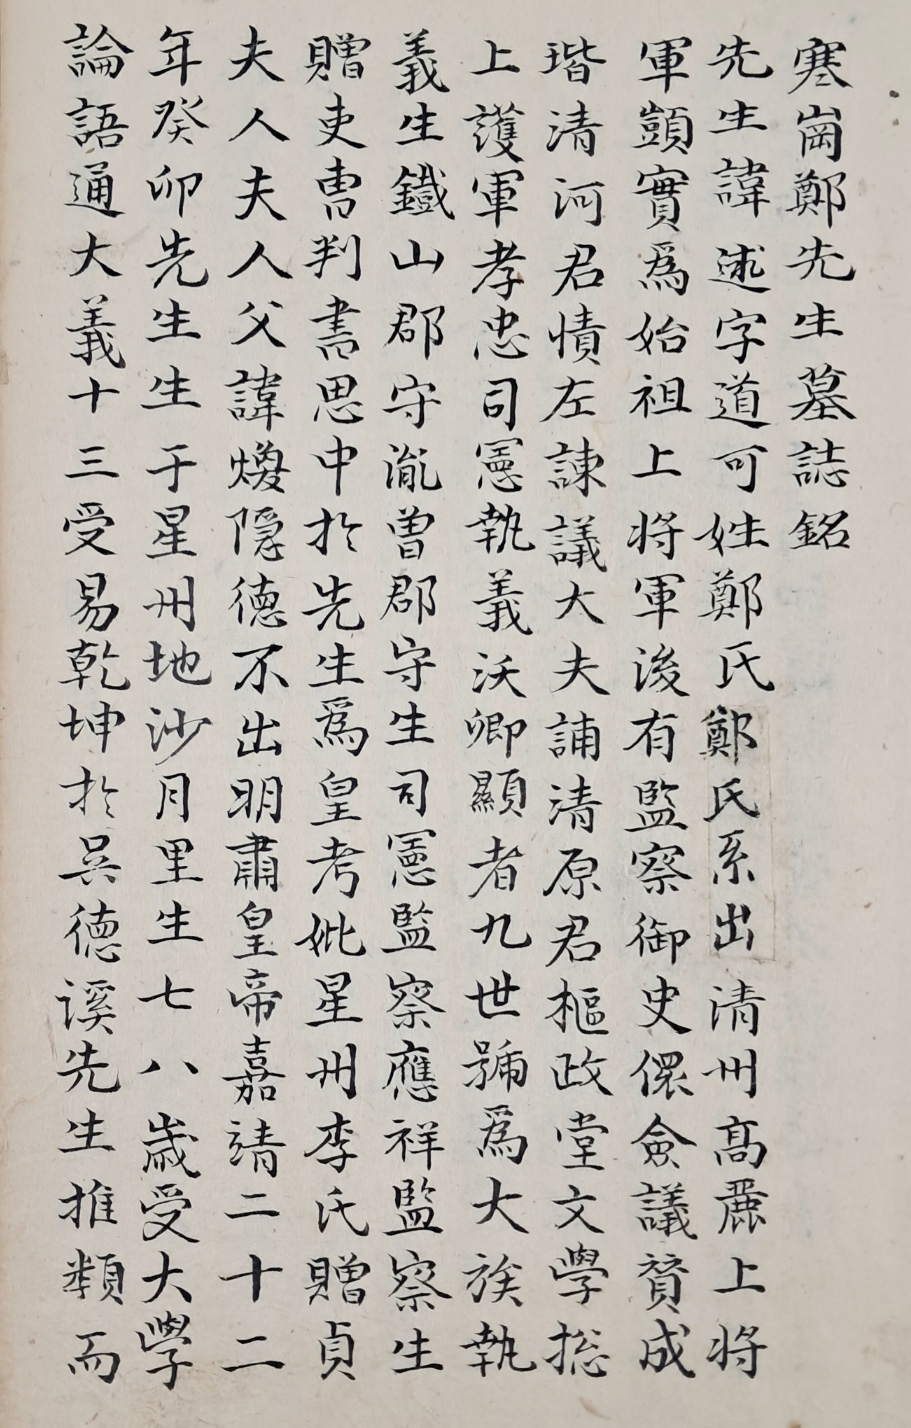 寒崗鄭先生墓誌銘
先生諱逑字道可姓鄭氏鄭氏系出清州高麗上將
軍顗實爲始祖上將軍後有監察御史儇僉議贊成
瑎清河君㥽左諫議大夫誧清原君樞政堂文學摠
上護軍孝忠司憲執義沃卿顯者九世號爲大族執
義生鐵山郡守胤曾郡守生司憲監察應祥監察生
贈吏曺判書思中於先生爲皇考妣星州李氏贈貞
夫人夫人父諱煥隱德不出明肅皇帝嘉靖二十二
年癸卯先生生于星州地沙月里生七八歲受大學
論語通大義十三受易乾坤於吳德溪先生推類而